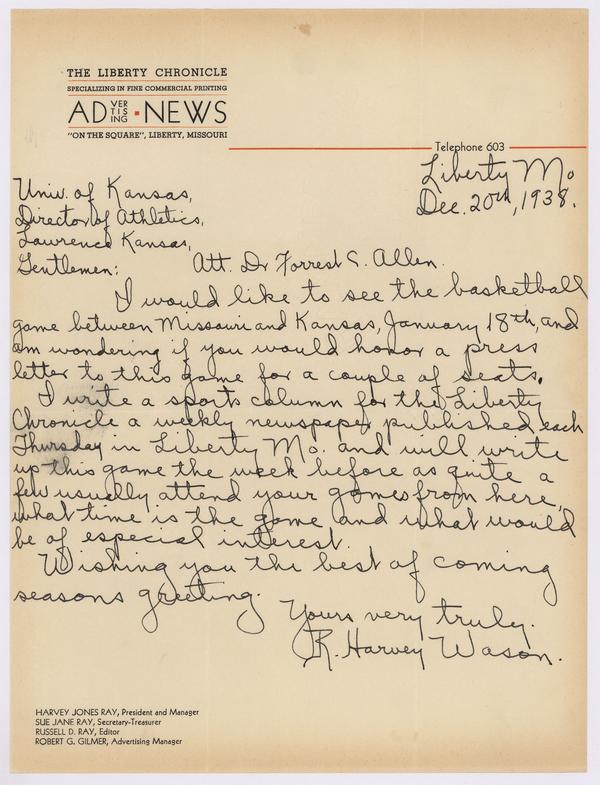 THE LIBERTY CHRONICLE
SPECIALIZING IN FINE COMMERCIAL PRINTING
ADVERTISING · NEWS
"ON THE SQUARE", LIBERTY, MISSOURI
Telephone 603
Liberty Mo
Dec. 20th, 1938.
Univ. of Kansas,
Director of Athletics,
Lawrence Kansas,
Gentlemen: Att. Dr Forrest C. Allen.
I would like to see the basketball
game between Missouri and Kansas, January 18th, and
am wondering if you would honor a press
letter to this game for a couple of seats.
I write a sports column for the Liberty
Chronicle a weekly newspaper published each
Thursday in Liberty Mo. and will write
up this game the week before as quite a
few usually attend your games from here,
what time is the game and what would
be of especial interest.
Wishing you the best of coming
seasons greeting.
Yours very truly.
R. Harvey Wason.
HARVEY JONES RAY, President and Manager
SUE JANE RAY, Secretary-Treasurer
RUSSELL D. RAY, Editor
ROBERT G. GILMER, Advertising Manager